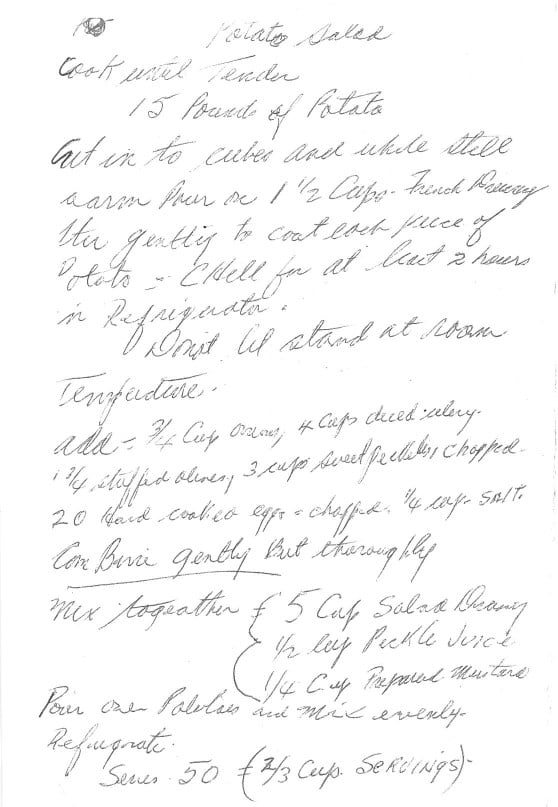 Potato Salad
Cook until Tender
15 Pounds of Potato
Cut in to cubes and while still
warm Pour on 1 1/2 Cups - French Dressing
Stir gently to coat each piece of
Potato - CHill for at least 2 hours
in Refrigerator.
Do not let stand at room
Temperature.
add - 3/4 Cup onions, 4 cups diced celery.
1 3/4 stuffed olives, 3 cups sweet pickles chopped -
20 Hard cooked eggs - chopped. 1/4 cup - SALT.
Com Bine gently But thoroughly
Mix togeather { 5 Cup Salad Dressing
1/2 Cup Pickle Juice
1/4 Cup Prepared Mustard
Pour over Potatoes and Mix evenly.
Refrigerate.
Serves 50 (2/3 Cup. SERVINGS) -